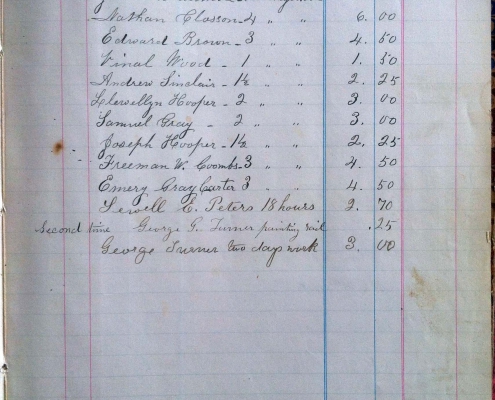 Nathan Closson - 4 " " 6. 00
Edward Brown - 3 " " 4. 50
Vinal Wood - 1 " " 1. 50
Andrew Sinclair - 1½ " " 2. 25
Llewellyn Hooper - 2 " " 3. 00
Samuel Gray - 2 " " 3. 00
Joseph Hooper - 1½ " " 2. 25
Freeman W. Coombs - 3 " " 4. 50
Emery Gray Carter 3 " " 4. 50
Sewell E. Peters 18 hours 2. 70
Second time George G. Turner painting rail .25
George Turner two days work 3. 00